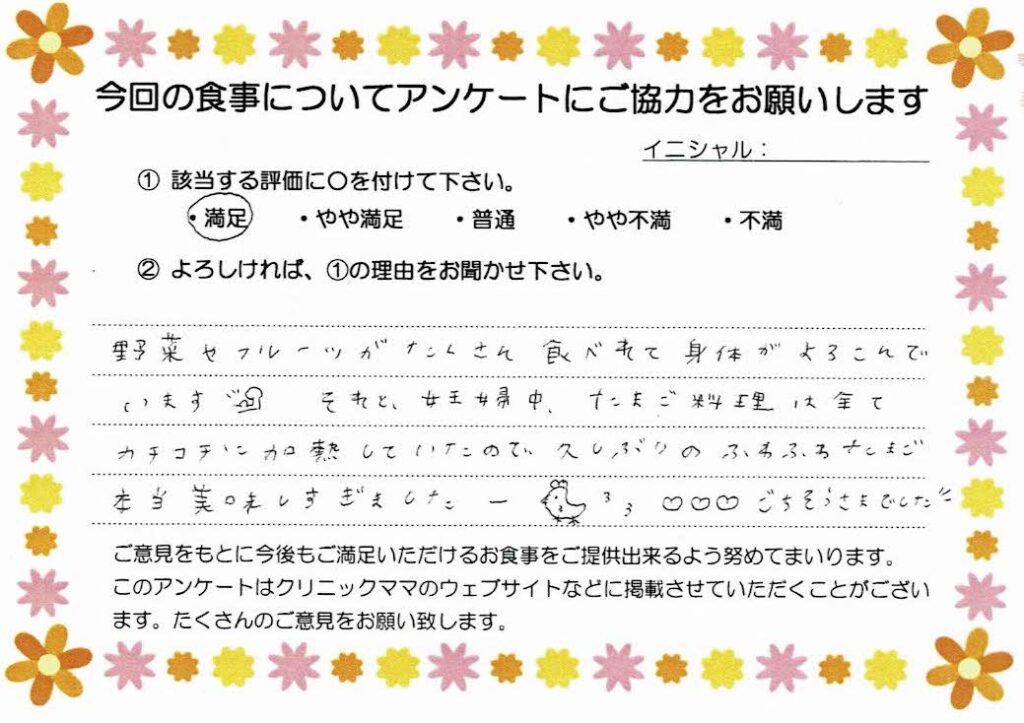 今回の食事についてアンケートにご協力をお願いします
イニシャル：
① 該当する評価に〇を付けて下さい。
・満足 ・やや満足 ・普通 ・やや不満 ・不満
② よろしければ、①の理由をお聞かせ下さい。
野菜やフルーツがたくさん 食べれて 身体が よろこんで
います それと、妊婦中、たまご料理は全て
カチコチに加熱していたので、久しぶりの ふわふわたまご
本当美味しすぎましたー ♡♡♡ ごちそうさまでした
ご意見をもとに今後もご満足いただけるお食事をご提供出来るよう努めてまいります。
このアンケートはクリニックママのウェブサイトなどに掲載させていただくことがござい
ます。たくさんのご意見をお願い致します。